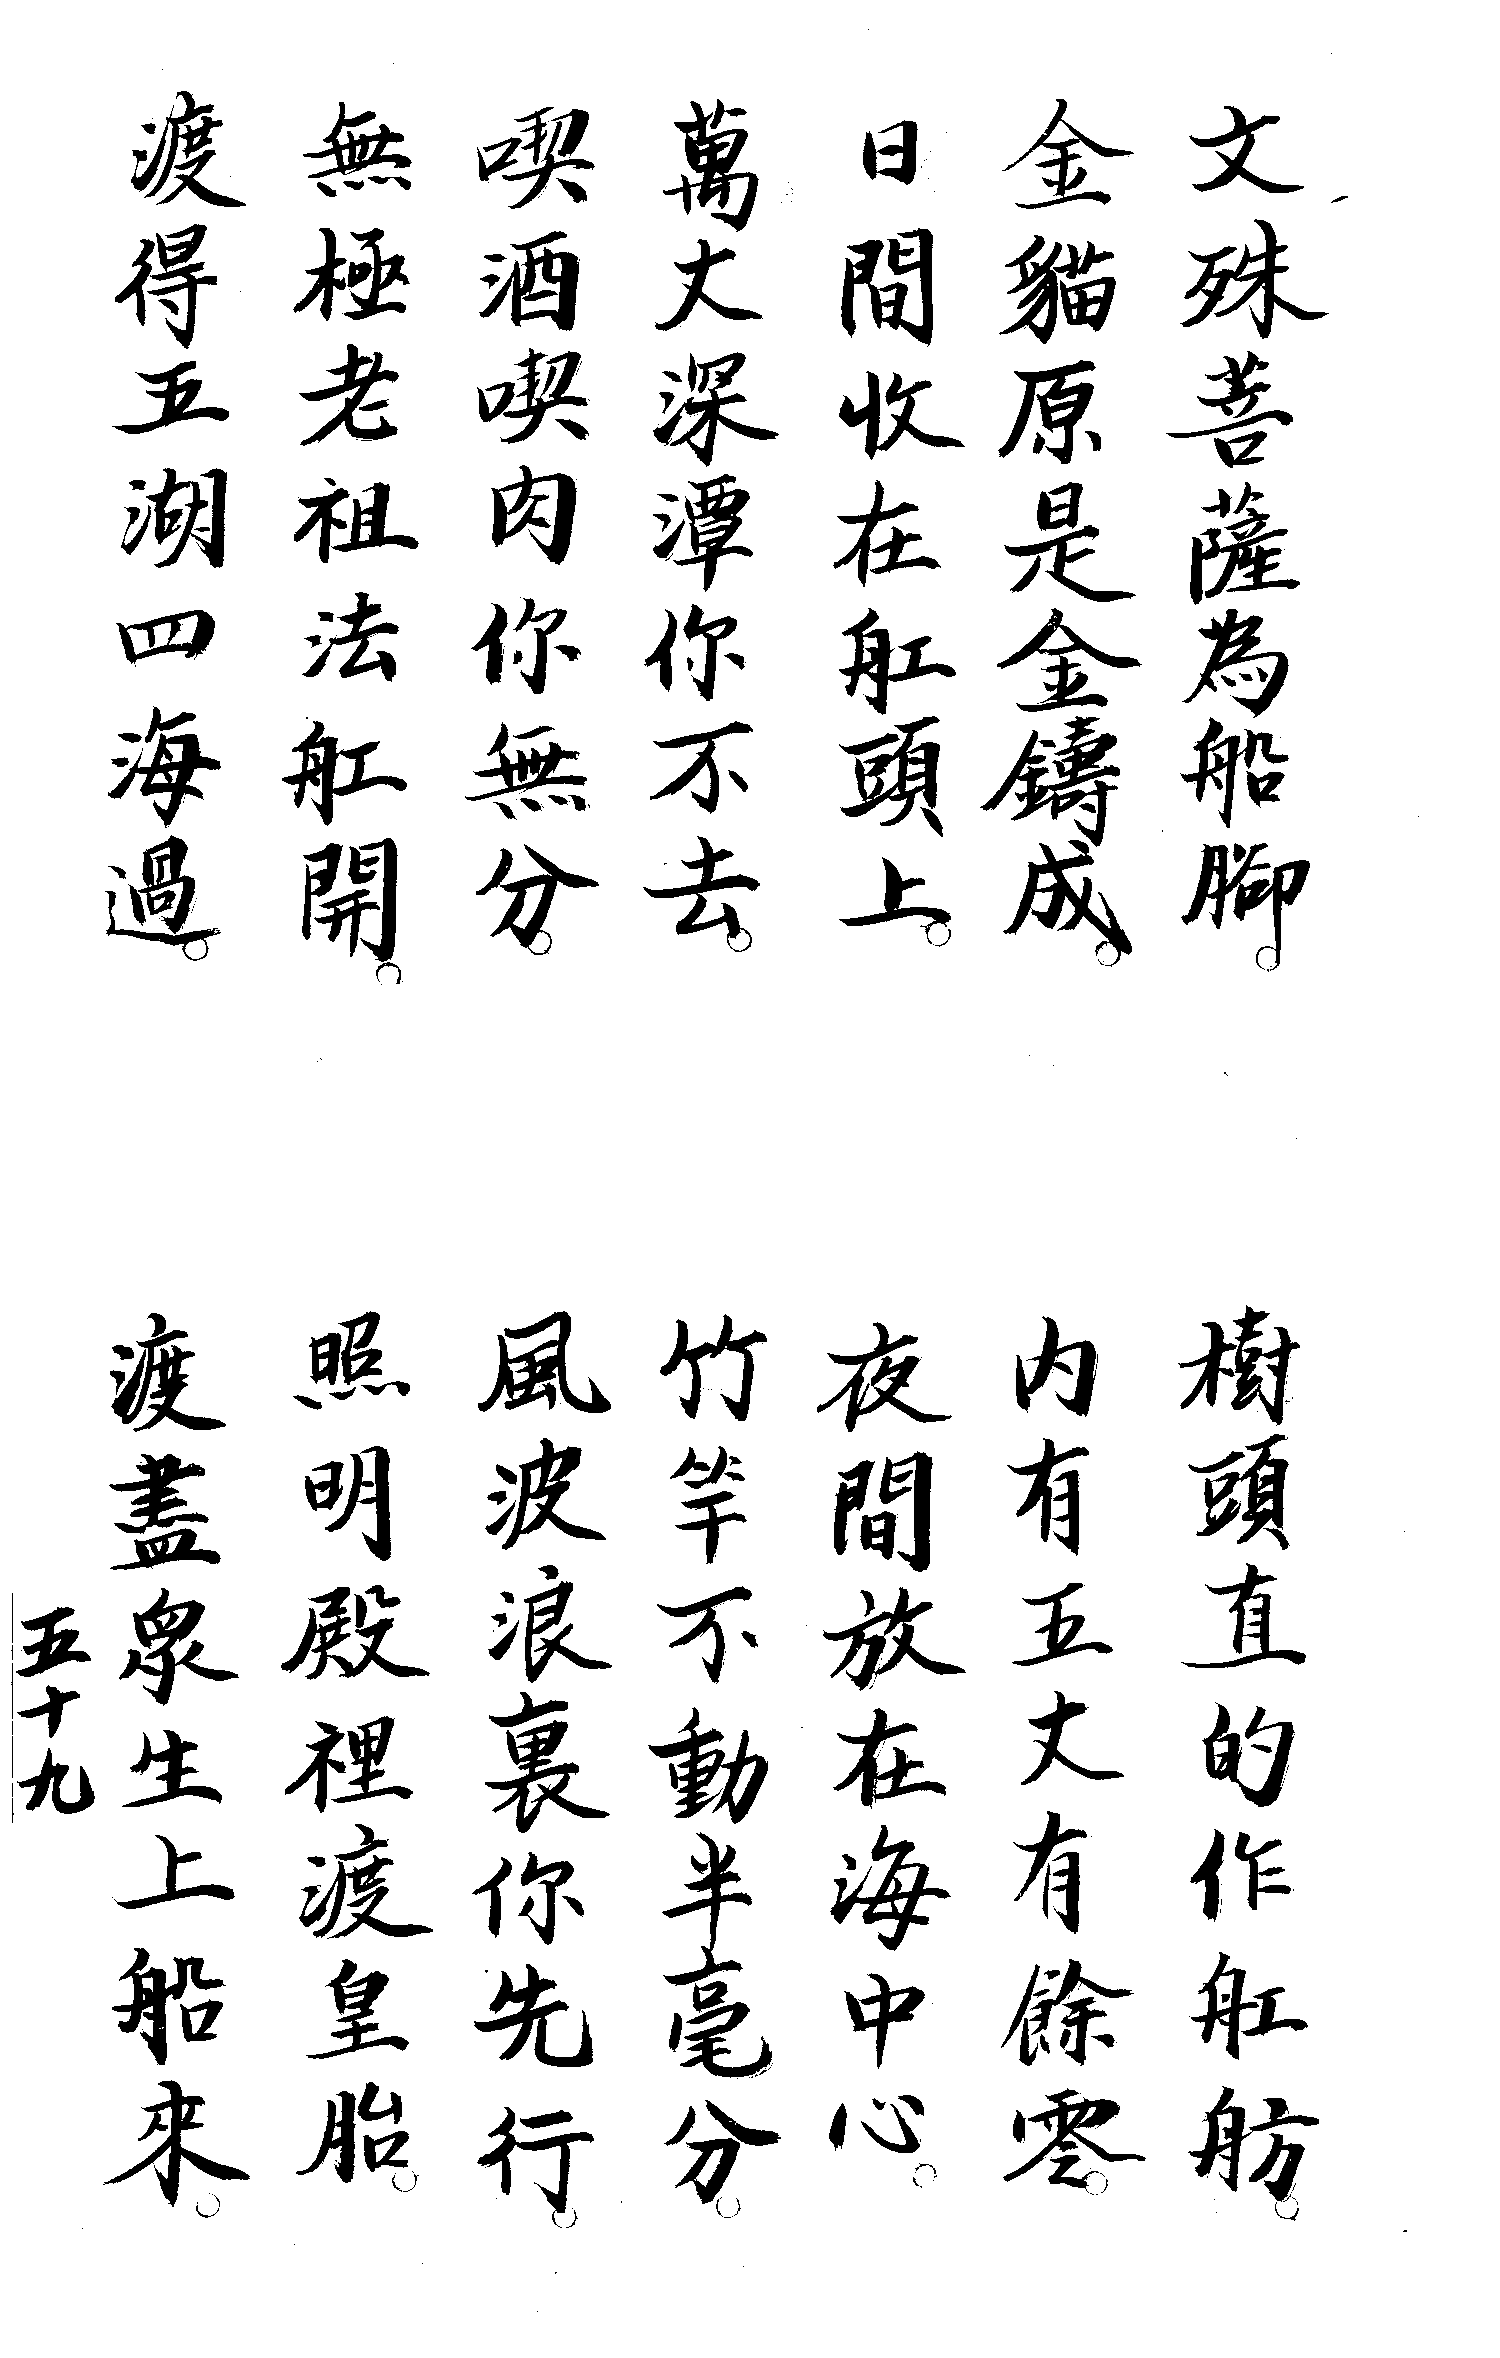 文殊菩薩為船腳。
樹頭直的作舡舫。
金貓原是金鑄成。
內有五丈有餘零。
日間收在舡頭上。
夜間放在海中心。
萬丈深潭你不去。
竹竿不動半毫分。
喫酒喫肉你無分。
風波浪裏你先行。
無極老祖法舡開。
照明殿裡渡皇胎。
渡得五湖四海過。
渡盡眾生上船來。
五十九